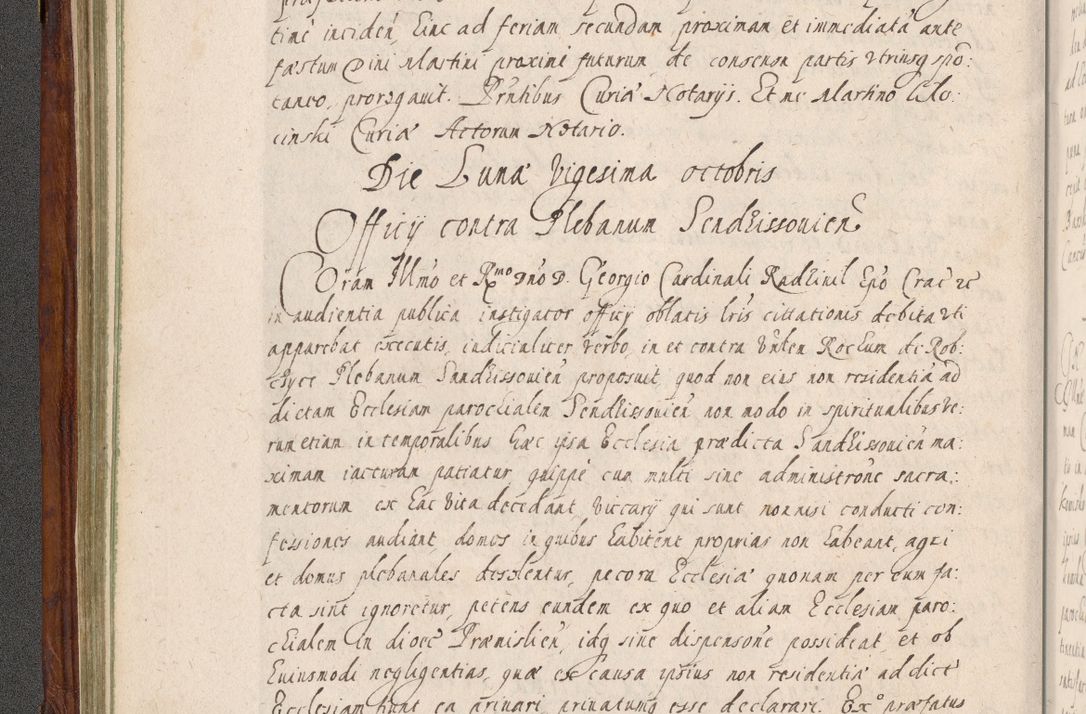 time inciden hinc ad feriam secundam proximam et immediatã ante
festum Divi Martini proximè futurum de consensu partis utriusq spo:
taneo, prorogavit. Pñtibus Curiæ Notarijs. Et me Martino
cinski Curiæ Actorum Notario.
Die Lunæ Vigesima octobris
Officij contra Plebanum Sendzissovien
Coram Illmo et Rmo Dno D. Georgio Cardinali Radzivil Epo Crac etc
in audientia publica instigator officij oblatis lris cittationis debita uti
apparebat executis, iudicialiter verbo, in et contra Vnlem Rochum de Rob:
czyce Plebanum Sandzissovien proposuit, quod non eius non residentiã ad
dictam Ecclesiam parochialem Sendzissovien non modo in spiritualibus ve:
rum etiam in temporalibus hæc ipsa Ecclesia prædicta Sandzissovien ma:
ximam iacturam patiatur, quippe cum multi sine administrone sacra:
mentorum ex hac vita decedant, Viccarij qui sunt nonnisi conducti con:
fessiones audiant, domos in quibus habitent proprias non habeant, agri
et domus plebanales desolentur, pecora Ecclesiæ quonam per eum fa:
cta sint ignoretur, petens eundem ex quo et aliam Ecclesiam paro:
chialem in dioec Præmislien, idq sine dispensone possideat, et ob
huiusmodi negligentias, quæ ex causa ipsius non residentiæ ad dictã
Ecclesiam fiunt ea privari, privatumq esse declarari. Exo præfatus